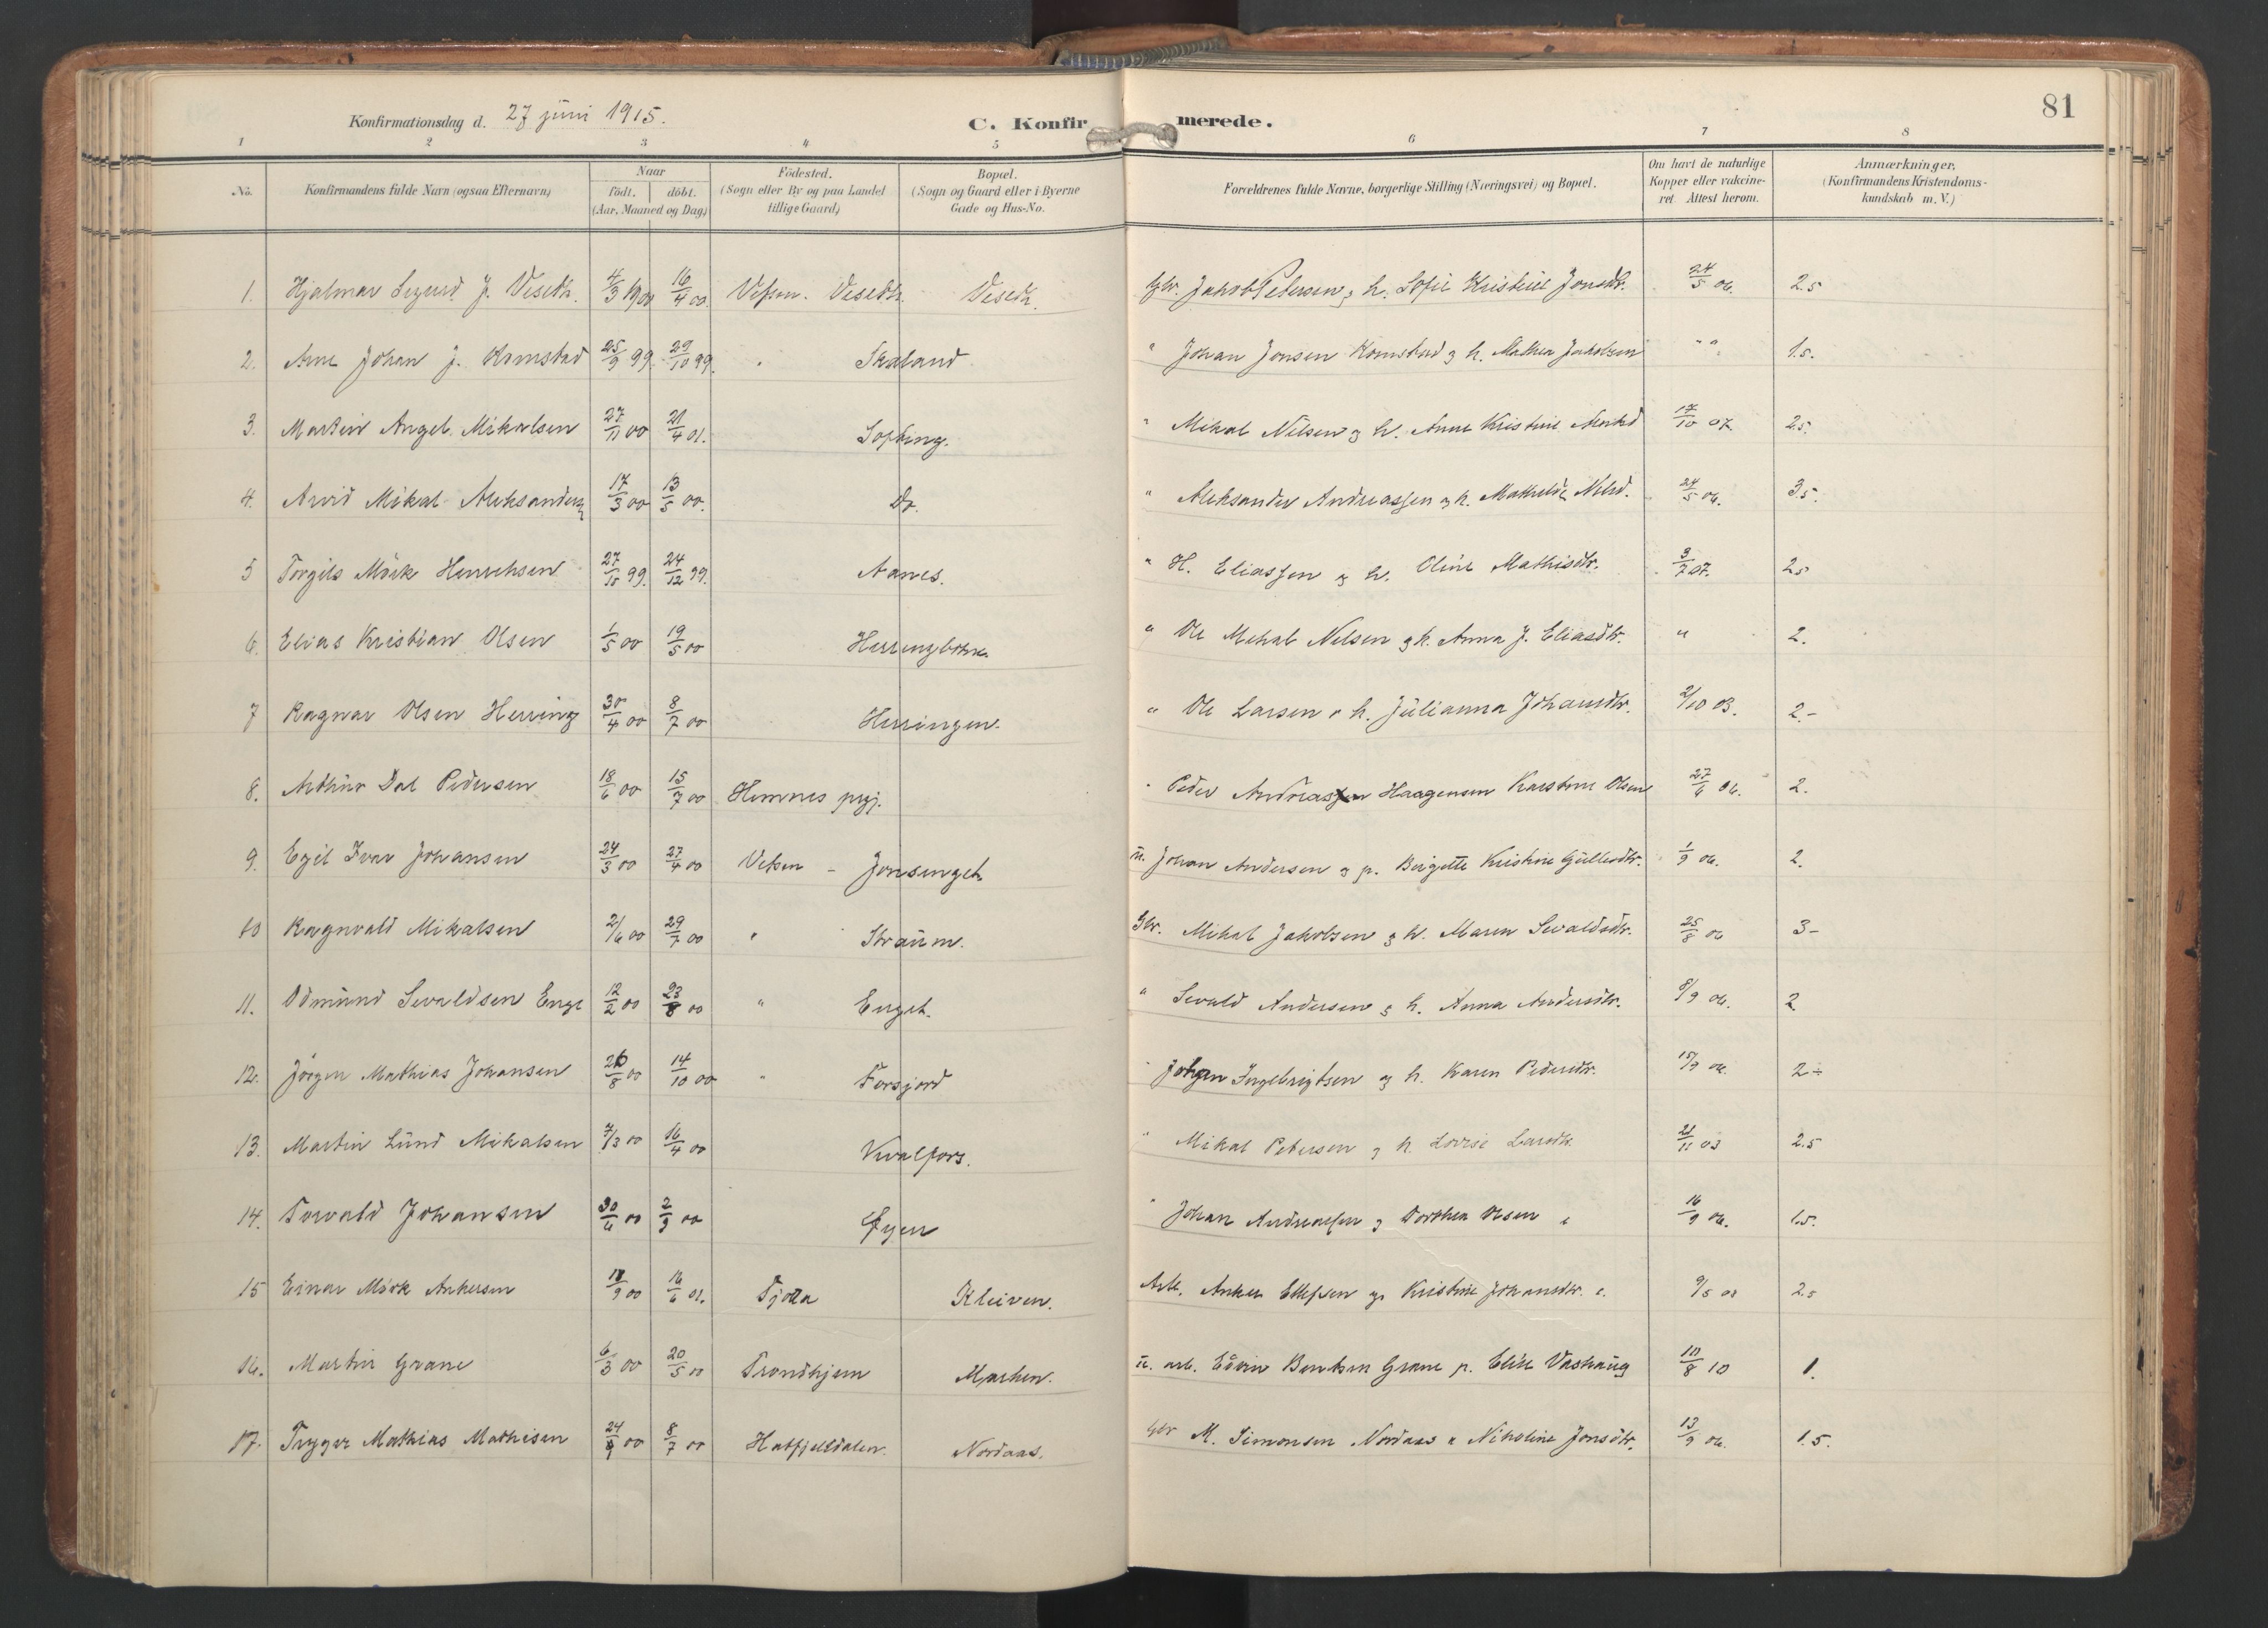 Konfirmationsdag d. 27 juni 1915.
C. Konfirmerede.
81
1 2 3 4 5 6 7 8
No.
Konfirmandens fulde Navn (ogsaa Efternavn)
Naar
født. døbt.
(Aar, Maaned og Dag)
Fødested.
(Sogn eller By og paa Landet
tillige Gaard)
Bopæl.
(Sogn og Gaard eller i Byerne
Gade og Hus-No.
Forældrenes fulde Navne, borgerlige Stilling (Næringsvei) og Bopæl.
Om havt de naturlige
Kopper eller vakcine-
ret. Attest herom.
Anmærkninger.
(Konfirmandens Kristendoms-
kundskab m. V.)
1. Hjalmar Sigurd J. Veseth. 4/3 1900 16/4 00. Vefsen. Veseth. Veseth. Gbr. Jakob Petersen g h. Sofie Kristine Jonsdtr. 24/5 06. 2.5
2. Arne Johan J. Komstad 25/9 99. 29/10 99. " Skaland " Johan Jonsen Komstad g h. Mathea Jakobsen " " 1.5.
3. Martin Angel. Mikalsen 27/11 00 21/4 01. Softing. " Mikal Nilsen g h. Anne Kristine 17/10 07. 2.5.
4. Arvid Mikal Aleksandersen 17/3 00 13/5 00. Do. " Aleksander Andreassen g h. Mathilde Nilsd. 24/5 06. 3.5.
5 Torgils Mörk Henriksen 27/10 99. 24/12 99. Aanes. " H. Eliassen g h. Oline Mathisdtr. 3/7 07. 2.5
6. Elias Kristian Olsen 1/5 00 19/5 00 " Ole Mikal Nilsen g h. Anna J. Eliasdtr. " 2.
7 Ragnar Olsen Herring 30/4 00 8/7 00 Herringen. " Ole Larsen " h. Julianna Johansdtr. 2/10 03. 2.-
8. Arthur Dal Pedersen 18/6 00 15/7 00 Hemnes prgj. " Peder Andreassen Haagensen Karstine Olsen 27/6 06. 2.
9. Egil Ivar Johansen 24/3 00 27/4 00 Vefsen - Jonsenget u. Johan Andersen g p. Birgitte Kristine 1/9 06. 2.
10 Ragnvald Mikalsen 2/6 00 29/7 00 " Straum. Gbr. Mikal Jakobsen g h. Maren Sivaldsdtr. 25/8 06 3-
11. Odmund Sivaldsen Enge 12/2 00 23/8 00 " Enget. " Sivald Andersen g h. Anna Andersdtr. 8/9 06. 2
12. Jörgen Mathias Johansen 26/8 00 14/10 00 " Forsjord " Johan Ingebrigtsen og h. Karen Pedersdtr. 15/9 06. 2÷
13. Martin Lund Mikalsen 7/3 00 16/4 00 Kvalfors. " Mikal Petersen g h. Lovise Larsdtr. 21/11 03 2.5
14. Torvald Johansen 30/6 00 2/9 00 Øyen " Johan Andreassen g Dorthea Olsen " 16/9 06. 1.5.
15 Einar Mörk Ankersen 18/9 00 16/6 01. Tjötta Kleiven. Arb. Anker Ellefsen g Kristine Johansdtr. 9/5 2.5
16. Martin Grane 6/3 00 20/5 00 Trondhjem Marken. u. arb. Edvin Bentsen Grane p. Elise Vashaug 10/8 10 1.
17. Trygve Mathias Mathisen 24/4 00 8/7 00 Hatfjeldalen. Nordaas. Gbr M. Simonsen Nordaas " Nikoline Jonsdtr. 13/9 06. 1.5.